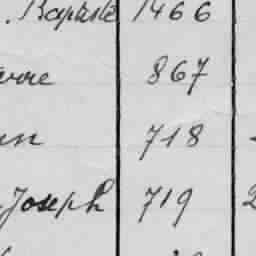 . Baptiste 1466
867
718
Joseph 719 2